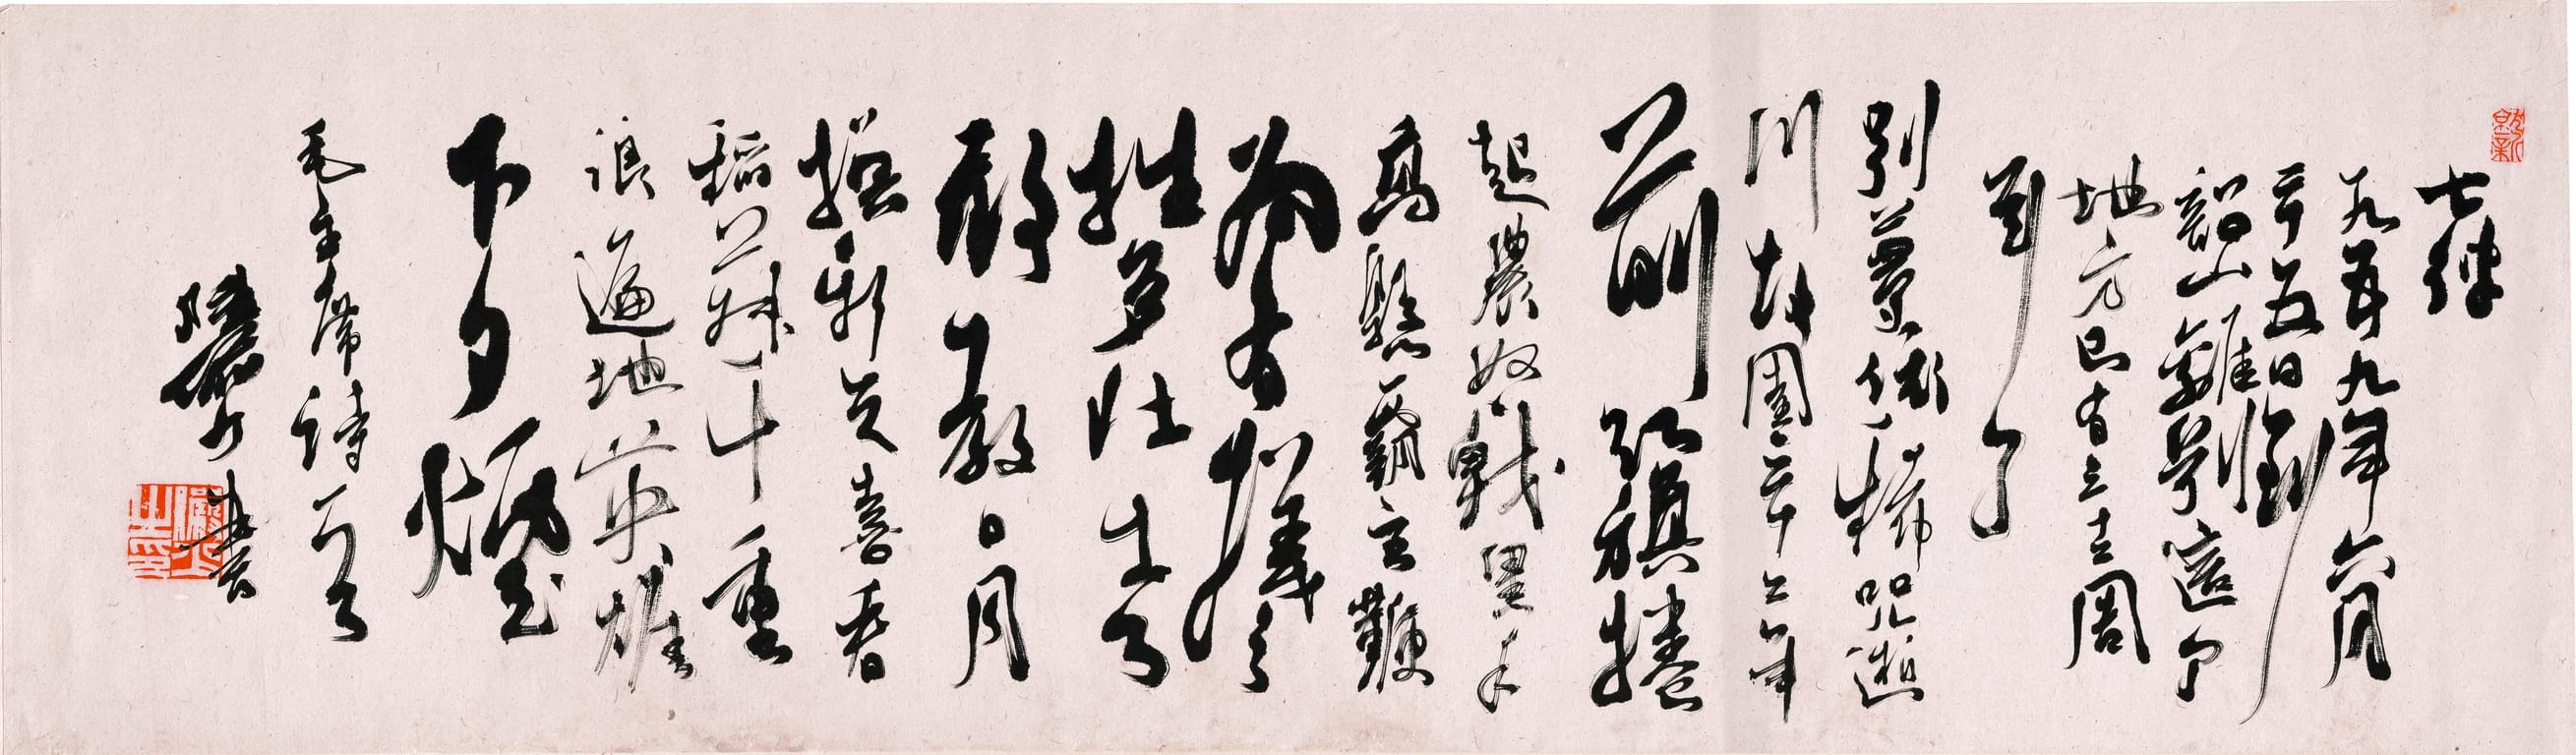 七律
一九五九年六月
二十五日到
韶山離別這个
地方已有三十二周
年了
別夢依稀咒逝
川故園三十二年
前紅旗捲
起農奴戟黑手
高懸霸主鞭
為有犧
牲多壯志
敢教日月
換新天喜看
稻菽千重
浪遍地英雄
下夕煙
毛主席詩一首
書